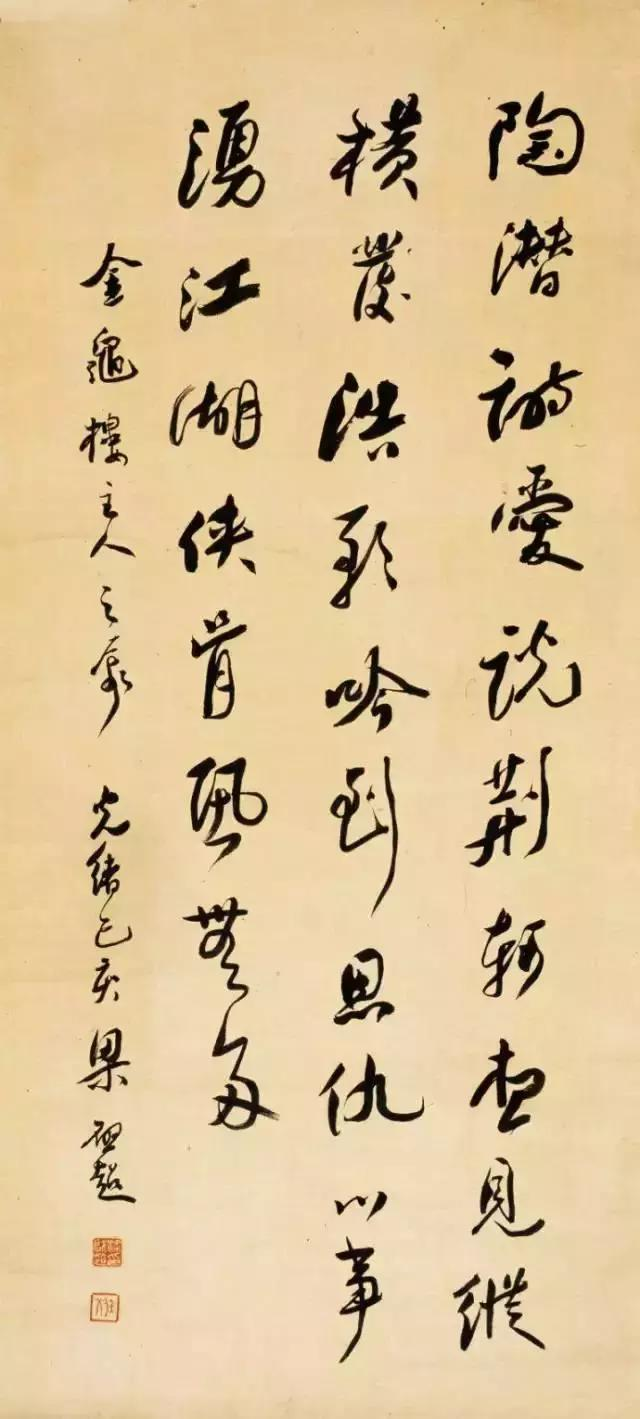 陶潛詩愛說荊軻想見縱
橫發浩歌吟到恩仇心事
湧江湖俠骨風無多
金龜樓主人之 光緒己亥 梁啟超